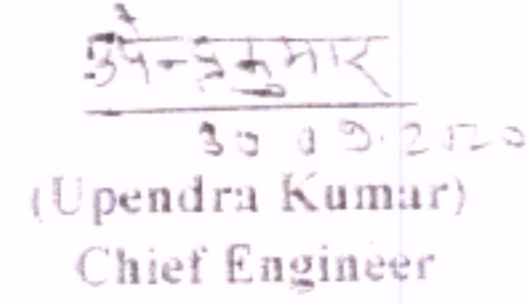 उपेन्द्रकुमार
30 09.2020
(Upendra Kumar)
Chief Engineer